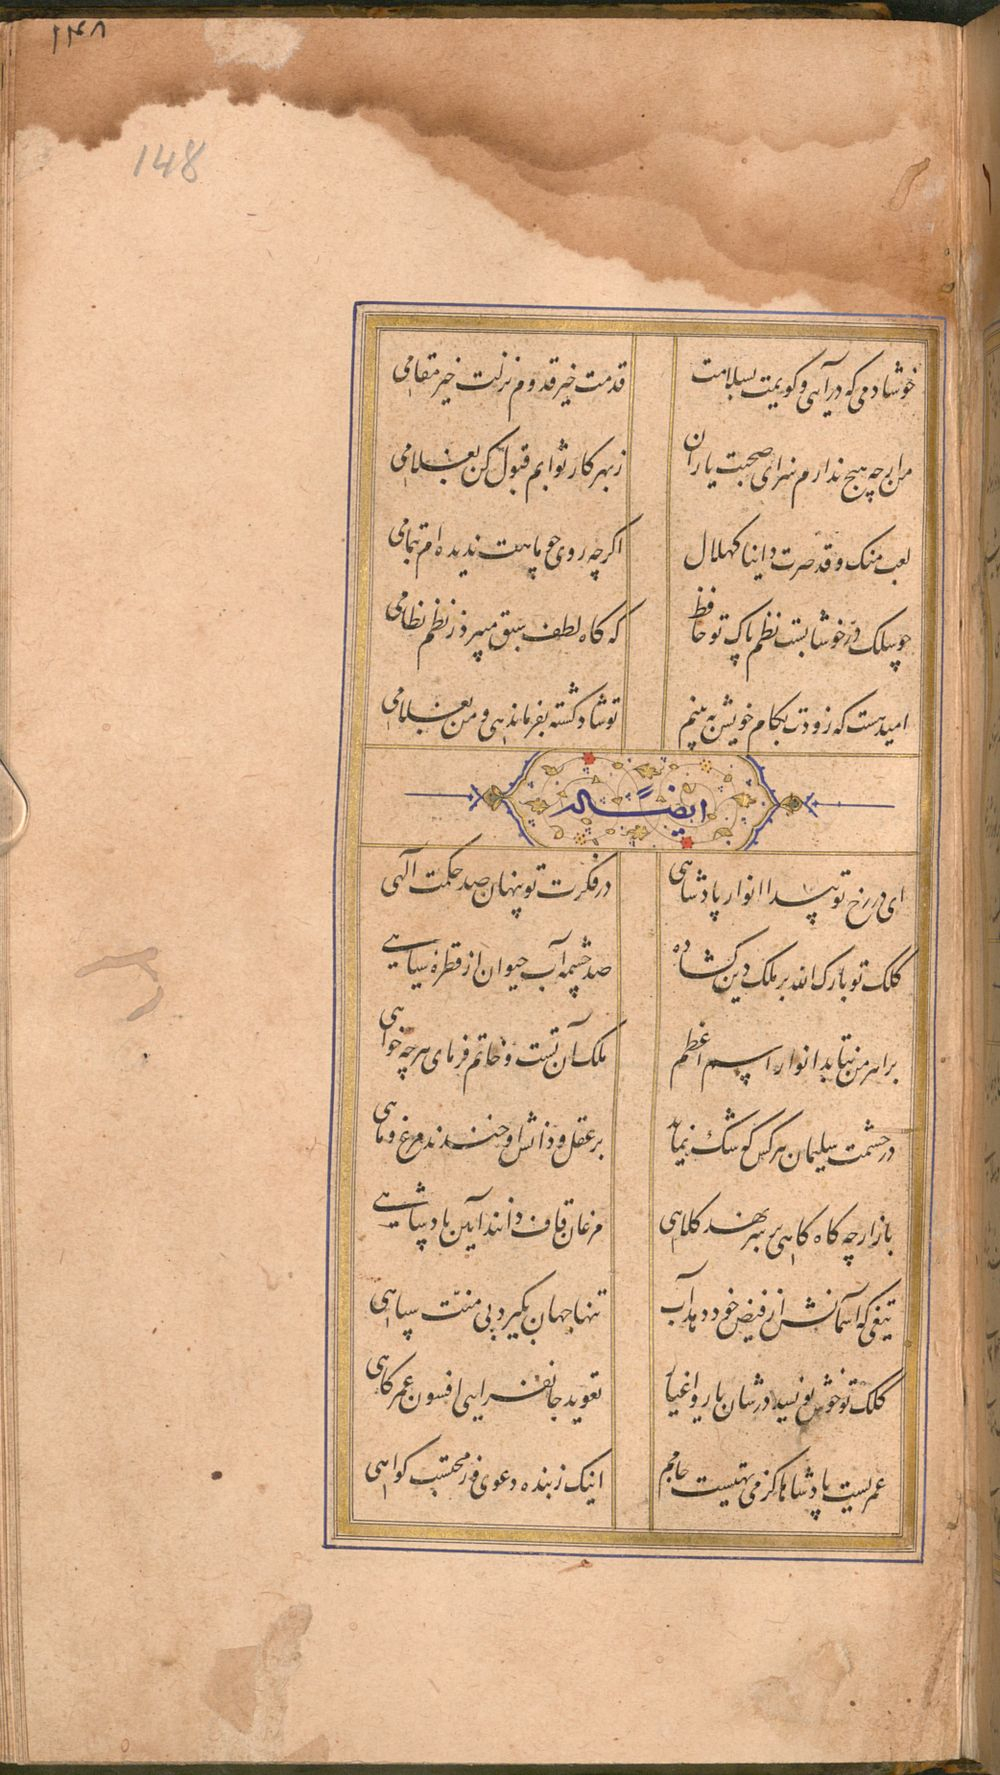 ۱۴۸
148
خوشا دمی که درآیی و گویمت بسلامت
قدمت خیر قدوم نزلت خیر مقامی
من ارچه هیچ ندارم سزای صحبت یاران
ز بهر کار ثوابم قبول کن بغلامی
بعدت منک و قد صرت ذایبا کهلال
اکرچه روی چو ماهت ندیده ام بتمامی
چو سلک در خوشابست نظم پاک تو حافظ
که کاه لطف سبق میبرد ز نظم نظامی
امید هست که زودت بکام خویش ببینم
تو شاد کشته بفرماندهی و من بغلامی
ایضا له
ای در رخ تو پیدا انوار پادشاهی
در فکرت تو پنهان صد حکمت الهی
کلک تو بارک الله بر ملک دین کشاده
صد چشمه آب حیوان از قطره سیاهی
بر اهرمن نتابد انوار اسم اعظم
ملک آن تست و خاتم فرمای هرچه خواهی
در حشمت سلیمان هر کس که شک نماید
بر عقل و دانش او خندند مرغ و ماهی
باز ارچه کاه کاهی بر سر نهد کلاهی
مرغان قاف دانند آیین پادشاهی
تیغی که آسمانش از فیض خود دهد آب
تنها جهان بکیرد بی منت سپاهی
کلک تو خوش نویسد در شان یار و اغیار
تعوید جانفزایی افسون عمر کاهی
عمریست پادشاها کز می تهیست جامم
اینک ز بنده دعوی وز محتسب کواهی